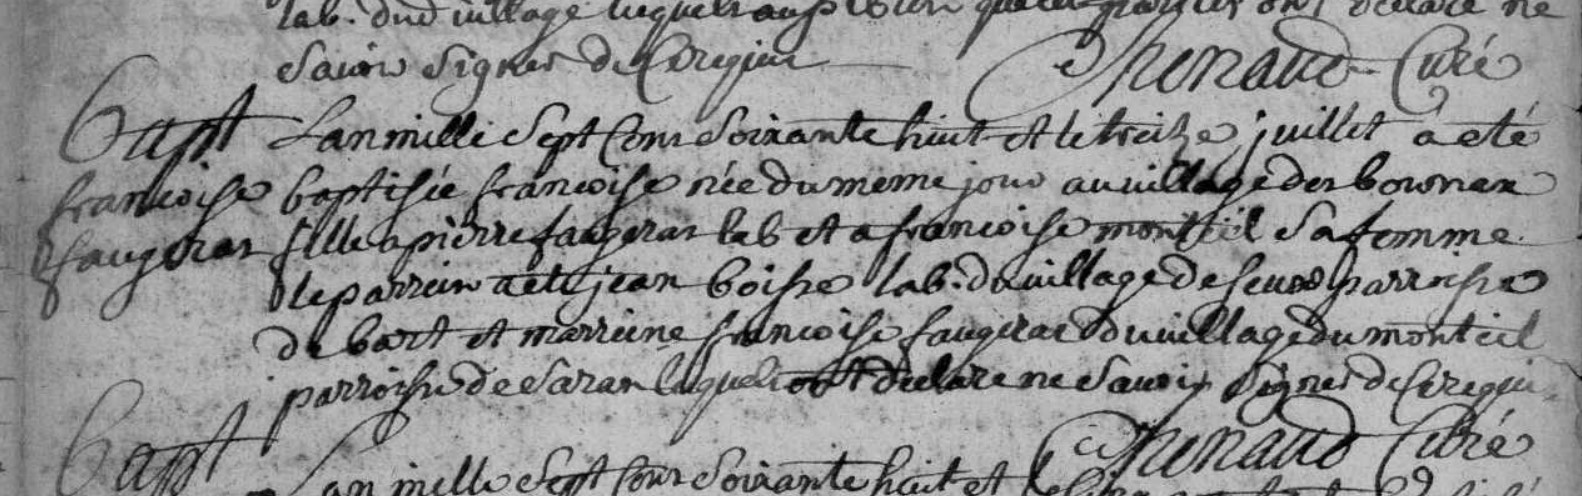 lab. dud village lequels aussi bien que les parties ont déclaré ne
savoir signer de ce requis Thenaud Curé
Bapt Lan mille sept cens soixante huit et le treize juillet a eté
francoise baptisée francoise née du meme jour au village des
faugeras fille a pierre faugeras lab et a francoise monteil sa femme
le parrein a eté jean boisse lab. du village de parroisse
de bart et marreine francoise faugeras du village du monteil
parroisse de saran lequels ont declare ne savoir signer de ce requis
Thenaud Curé
Bapt Lan mille sept cens soixante huit et